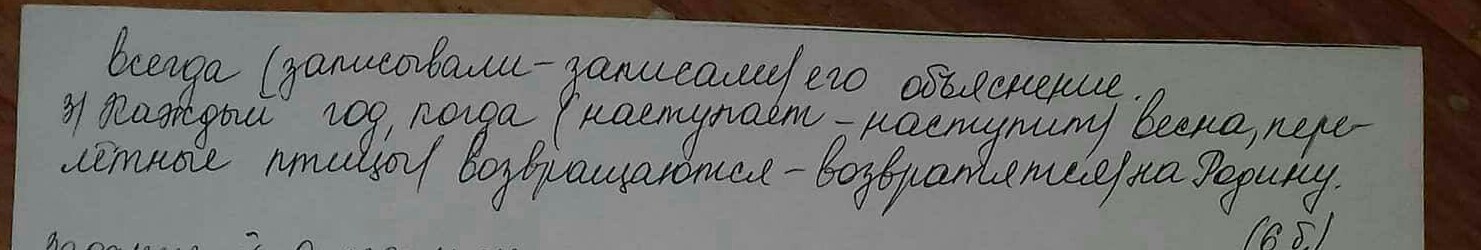 всегда (записывали - записали) его объяснение.
3) Каждый год, когда (наступает - наступит) весна, пере-
лётные птицы (возвращаются - возвратятся) на Родину.
(6 б.)